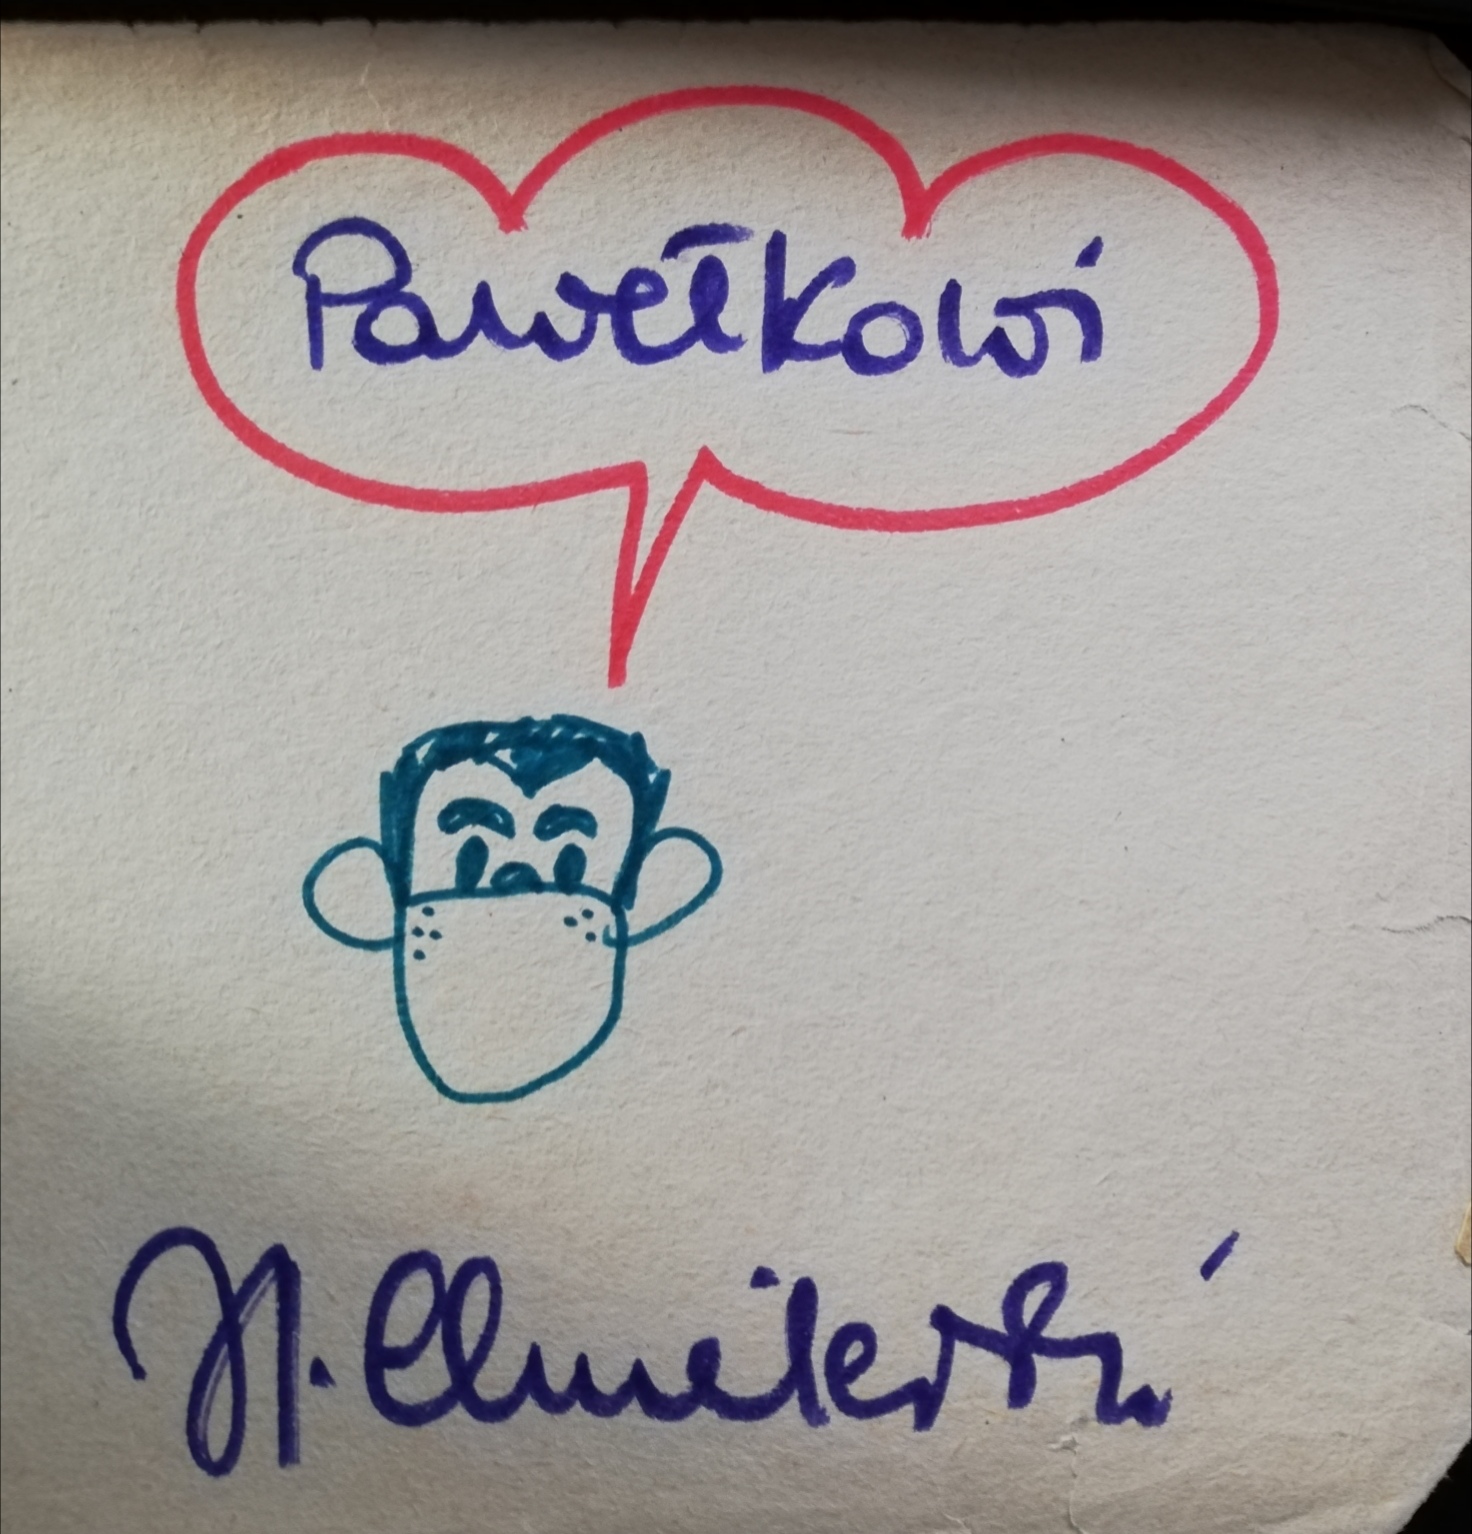 Pawełkowi
H. Chmielewski